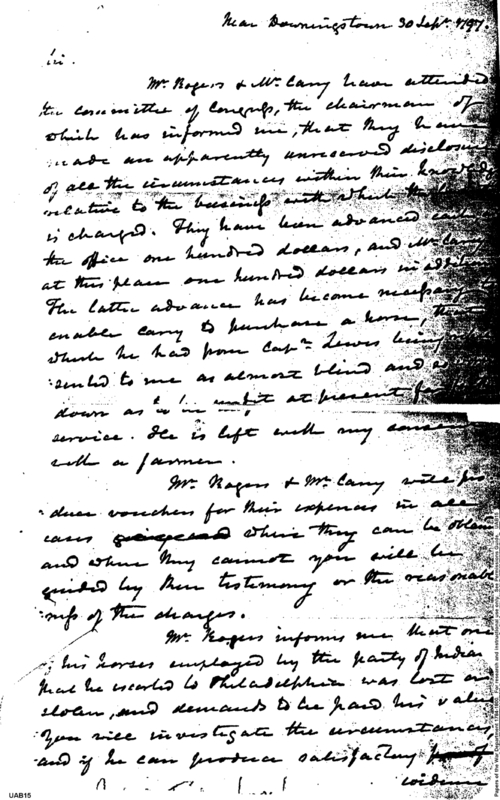 Near Downingstown 30 Sepr. 1797.
Sir.
Mr. Rogers & Mr. Carey have attended
the committee of Congress, the chairman of
which has informed me, that they have
made an apparently unreserved disclosure
of all the circumstances within their knowledge
relative to the business with which the
is charged. They have been advanced each
the office one hundred dollars, and Mr. Carey
at this place one hundred dollars in addition
The latter advance has become necessary to
enable Carey to purchase a horse, that
which he had from Capn. Lewis being
sented to me as almost blind and so
down as to be unfit at present for
service. He is left with my consent
with a farmer.
Mr. Rogers & Mr. Carey will pro
duce vouchers for their expenses in all
cases where they can be obtain
and where they cannot you will be
guided by their testimony or the reasonable
ness of the charges.
Mr. Rogers informs me that one
his horses employed by the party of Indians
that he escorted to Philadelphia was lost or
stolen, and demands to be paid his value
You will investigate the circumstances
and if he can produce satisfactory proof
evidence
UAB15